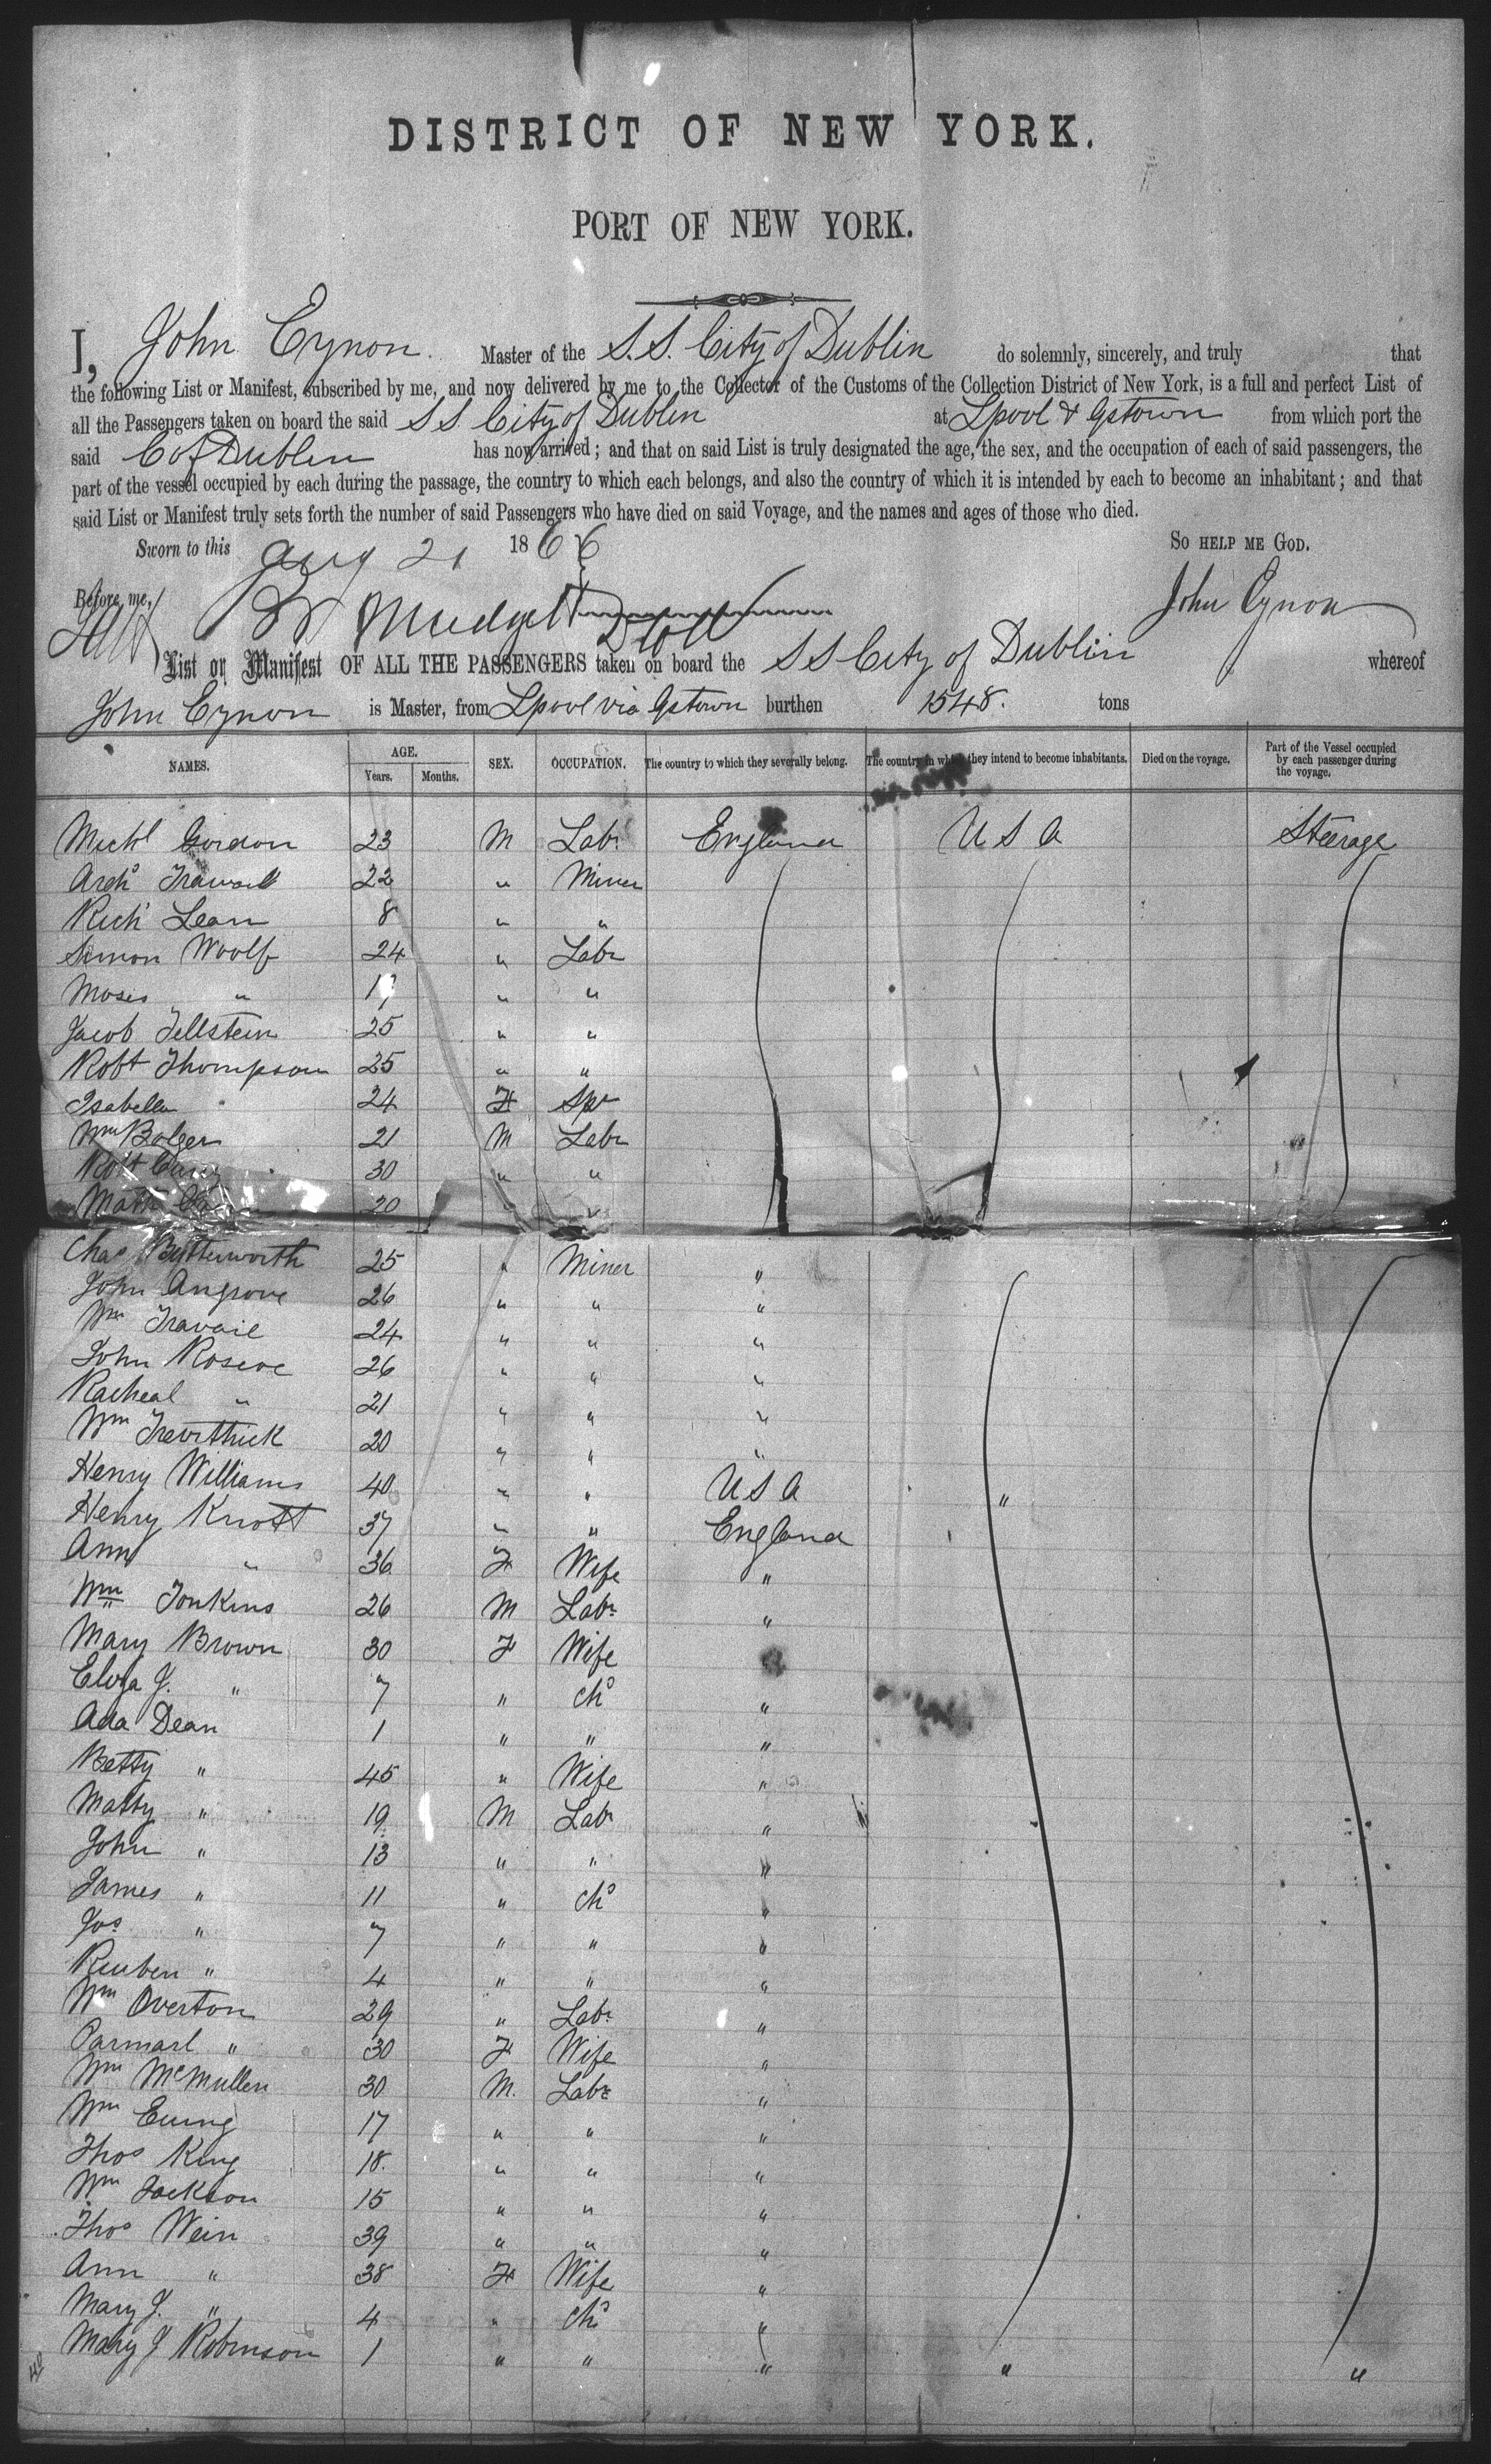 DISTRICT OF NEW YORK.
PORT OF NEW YORK.
I, John Eynon. Master of the S.S. City of Dublin do solemnly, sincerely, and truly that
the following List or Manifest, subscribed by me, and now delivered by me to the Collector of the Customs of the Collection District of New York, is a full and perfect List of
all the Passengers taken on board the said S S City of Dublin at Lpool & Qstown from which port the
said C of Dublin has now arrived; and that on said List is truly designated the age, the sex, and the occupation of each of said passengers, the
part of the vessel occupied by each during the passage, the country to which each belongs, and also the country of which it is intended by each to become an inhabitant; and that
said List or Manifest truly sets forth the number of said Passengers who have died on said Voyage, and the names and ages of those who died.
Sworn to this Aug 21 1866 So HELP ME GOD.
Before me, Mudgett John Eynon
List or Manifest OF ALL THE PASSENGERS taken on board the S S City of Dublin whereof
John Eynon is Master, from Lpool via Qstown burthen 1548. tons
NAMES. AGE. Years. Months. SEX. OCCUPATION. The country to which they severally belong. The country in which they intend to become inhabitants. Died on the voyage. Part of the Vessel occupied by each passenger during the voyage.
Michl Gordon 23 M Labr England U S A Steerage
Archd 22 " Miner
Richd Lean 8 " "
Simon Woolf 24 " Labr
Moses " " "
Jacob Tellstein 25 " "
Robt Thompson 25 " "
Isabella 24 F Spr
Wm Bolger 21 M Labr
Robt 30 " "
20 "
Chas Butterworth 25 " Miner "
John Angrove 26 " " "
Wm Travail 24 " " "
John Roscoe 26 " " "
Racheal " 21 " " "
Wm Trevithick 20 " " "
Henry Williams 40 " " U S A "
Henry Knott 37 " " England
Ann " 36 F Wife "
Wm Tonkins 26 M Labr "
Mary Brown 30 F Wife
Eliza J. " 7 " Chd "
Ada Dean 1 " " "
Betty " 45 " Wife "
Matty " 19 M Labr "
John " 13 " " "
James " 11 " Chd "
Jos " 7 " " "
Reuben " 4 " " "
Wm Overton 29 " Labr "
" 30 F Wife "
Wm McMullen 30 M. Labr "
Wm Ewing 17 " " "
Thos King 18 " " "
Wm Jackson 15 " " "
Thos Wein 39 " " "
Ann " 38 F Wife "
Mary J. " 4 " Chd "
Mary J Robinson 1 " " " " "
40